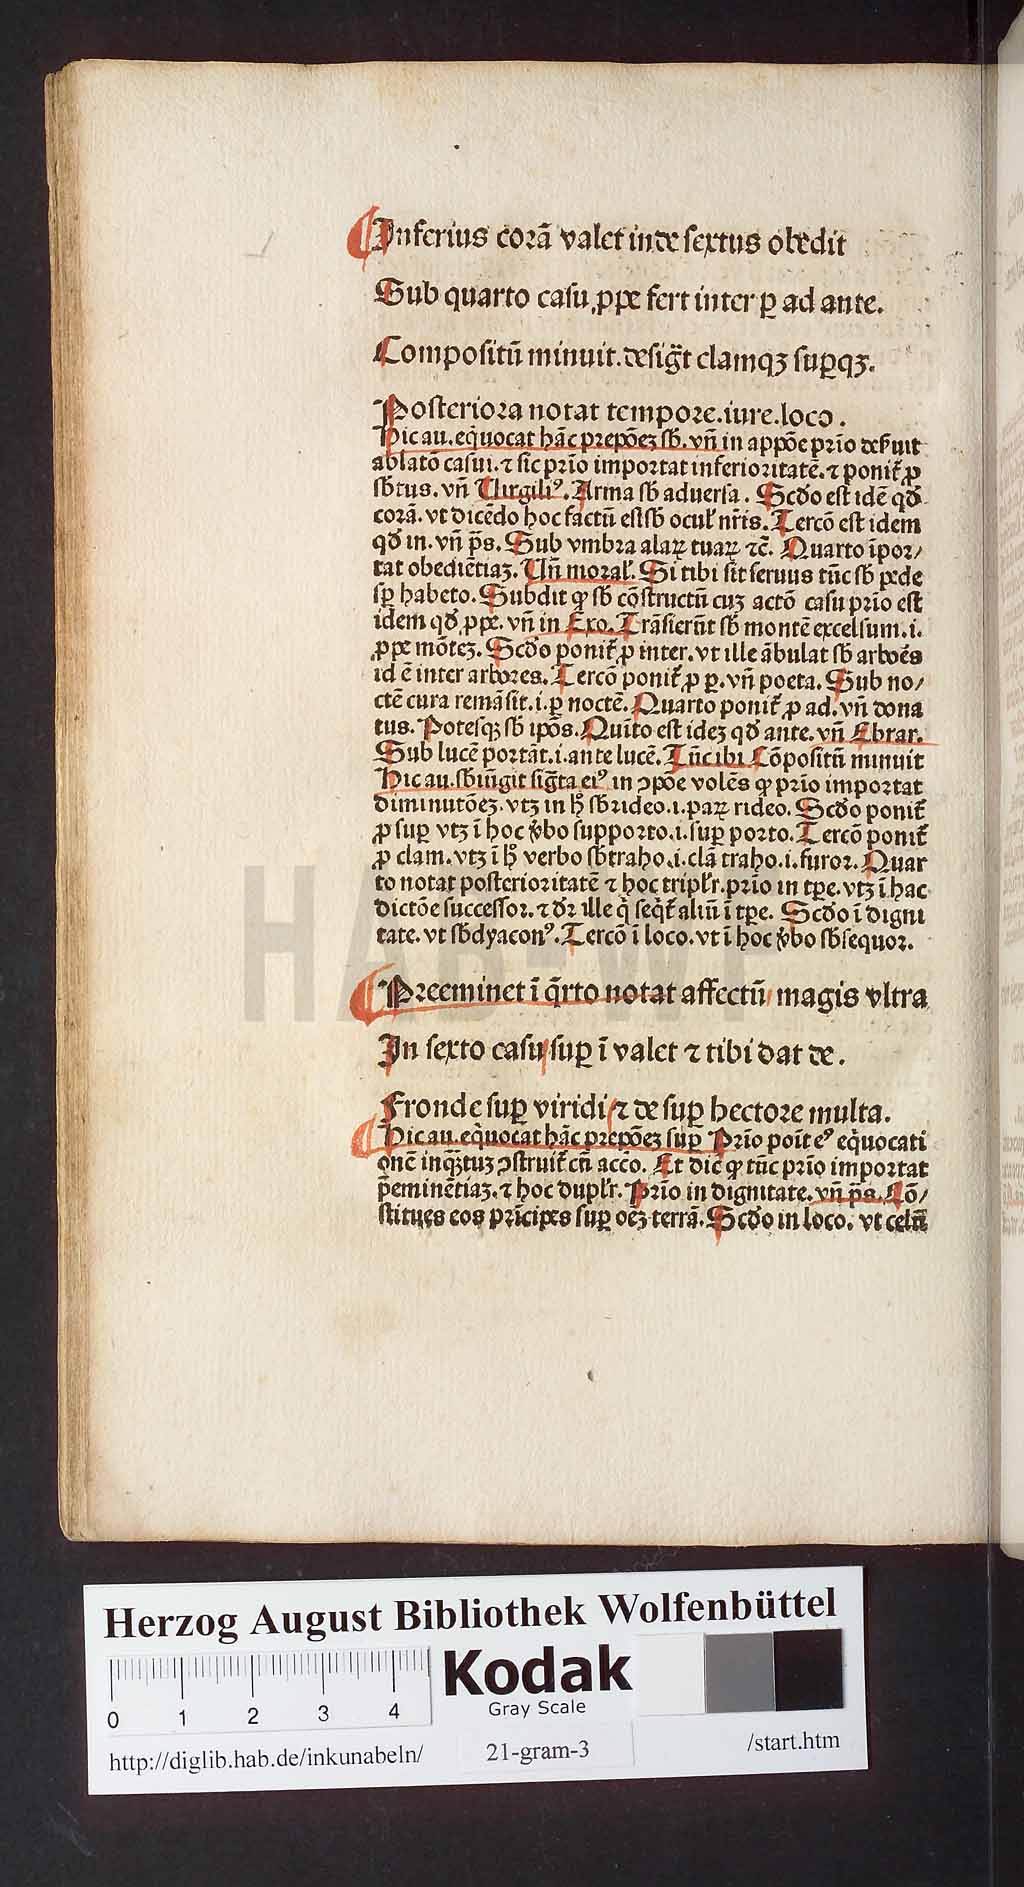 Inferius corā valet inde sextus obedit
Sub quarto casu ꝓpe fert inter ꝑ ad ante.
Compositū minuit. desig̅t clamqꝫ suꝑqꝫ.
Posteriora notat tempore. iure. loco.
Hic au. eq̇uocat hāc prepōeꝫ sb̄. vn̄ in appōe prīo deẜuit
ablatō casui. ⁊ sic prīo importat inferioritatē. ⁊ poniť ꝓ
sb̄tus. vn̄ Virgiliꝰ. Arma sb̄ aduersa. Scďo est idē qď
corā. vt dicēdo hoc factū est sb̄ ocul̓ nr̄is. Tercō est idem
qď in. vn̄ p̄s. Sub vmbra alaꝝ tuaꝝ ⁊c̄. Quarto īpor/
tat obediētiaꝫ. Vn̄ moral̓. Si tibi sit seruus tūc sb̄ pede
sꝑ habeto. Subdit ꝙ sb̄ cōstructū cuꝫ actō casu prīo est
idem qď ꝓpe. vn̄ in Exo. Trāsierūt sb̄ montē excelsum. i.
ꝓpe mōteꝫ. Scďo poniť ꝓ inter. vt ille ābulat sb̄ arboēs
id ē inter arbores. Tercō poniť ꝓ ꝑ. vn̄ poeta. Sub no/
ctē cura remāsit. i. ꝑ noctē. Quarto poniť ꝓ ad. vn̄ dona
tus. Potesqꝫ sb̄ ipōs. Quīto est ideꝫ qď ante. vn̄ Ebrar.
Sub lucē portāt. i. ante lucē. Tūc ibi Cōpositū minuit
Hic au. sb̄iūgit sig̅ta eiꝰ in ɔpōe volēs ꝙ prīo importat
diminutōeꝫ. vtꝫ in hͦ sb̄rideo. i. paꝝ rideo. Scďo poniť
ꝓ suꝑ vtꝫ ī hoc v̓bo supporto. i. suꝑ porto. Tercō poniť
ꝓ clam. vtꝫ ī hͦ verbo sb̄traho. i. clā traho. i. furor. Quar
to notat posterioritatē ⁊ hoc tripl̓r. prīo in tꝑe. vtꝫ ī hac
dictōe successor. ⁊ dr̄ ille q̇ seq̇ť aliū ī tꝑe. Scďo ī digni
tate. vt sb̄dyaconꝰ. Tercō ī loco. vt ī hoc v̓bo sb̄sequor.
Preeminet ī q̄rto notat affectū magis vltra
In sexto casu suꝑ ī valet ⁊ tibi dat de.
Fronde suꝑ viridi ⁊ de suꝑ hectore multa.
Hic au. eq̇uocat hāc prepōeꝫ suꝑ Prīo poīt eꝰ eq̇uocati
onē inq̄ꝫtuꝫ ɔstruiť cū accō. Et dic̄ ꝙ tūc prīo importat
p̄eminētiaꝫ. ⁊ hoc dupl̓r. Prīo in dignitate. vn̄ p̄s. Cō/
stitues eos prīcipes suꝑ oēꝫ terrā. Scďo in loco. vt celū
Herzog August Bibliothek Wolfenbüttel
Kodak
Gray Scale
0 1 2 3 4
http://diglib.hab.de/inkunabeln/ 21-gram-3 /start.htm
HAB-WF